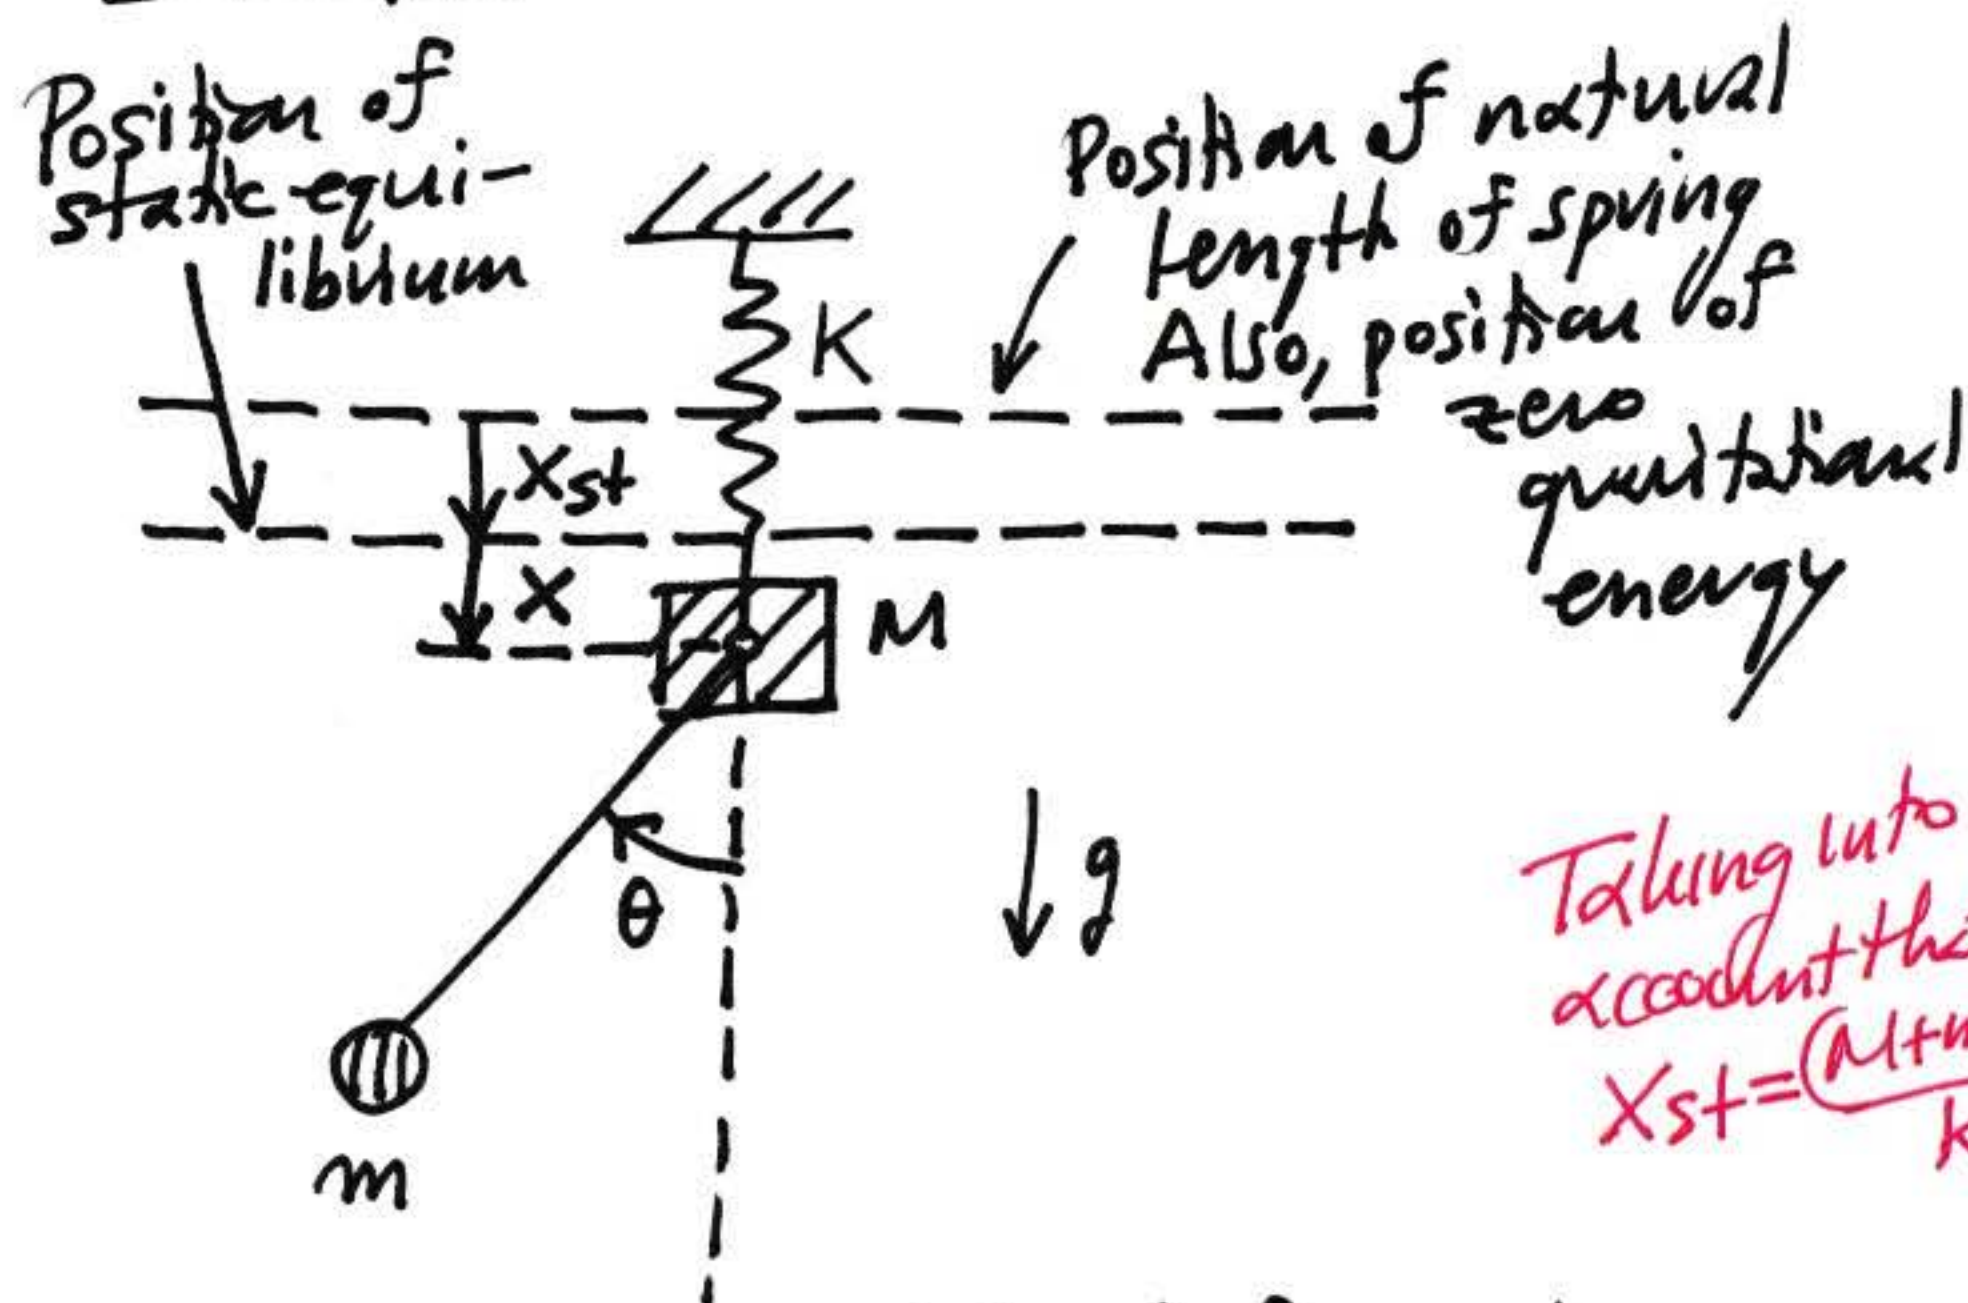 Position of
static equi-
librium
Position of natural
length of spring
Also, position of
zero
gravitational
energy
K
Xst
X
M
θ
g
m
Taking into
account tha
Xst=(M+m
k